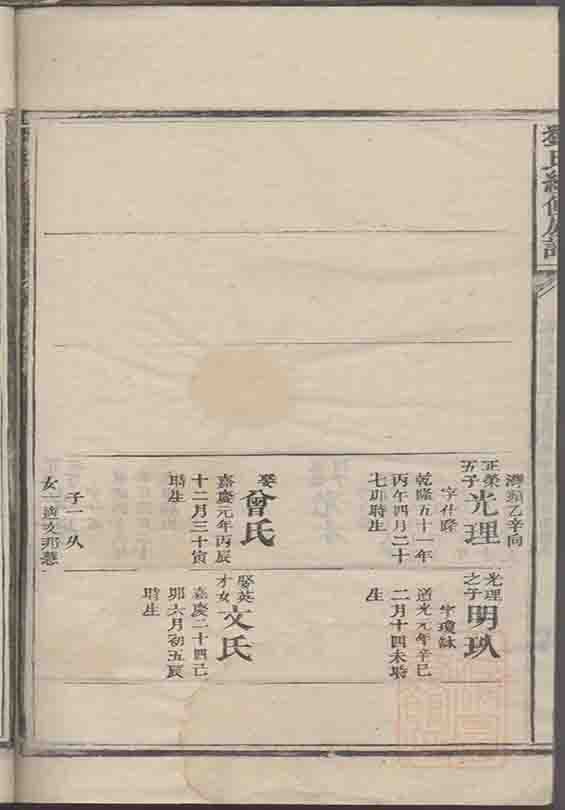 氏續修房譜
灣頭乙辛向
正榮
五子
光理
字仕隆
乾隆五十一年
丙午四月二十
七卯時生
娶
曾氏
嘉慶元年丙辰
十二月三十寅
時生
子一
女一適文
光理
之子
明玖
字瓊詠
道光元年辛巳
二月十四未時
生
娶英
才女
文氏
嘉慶二十四己
卯六月初五辰
時生